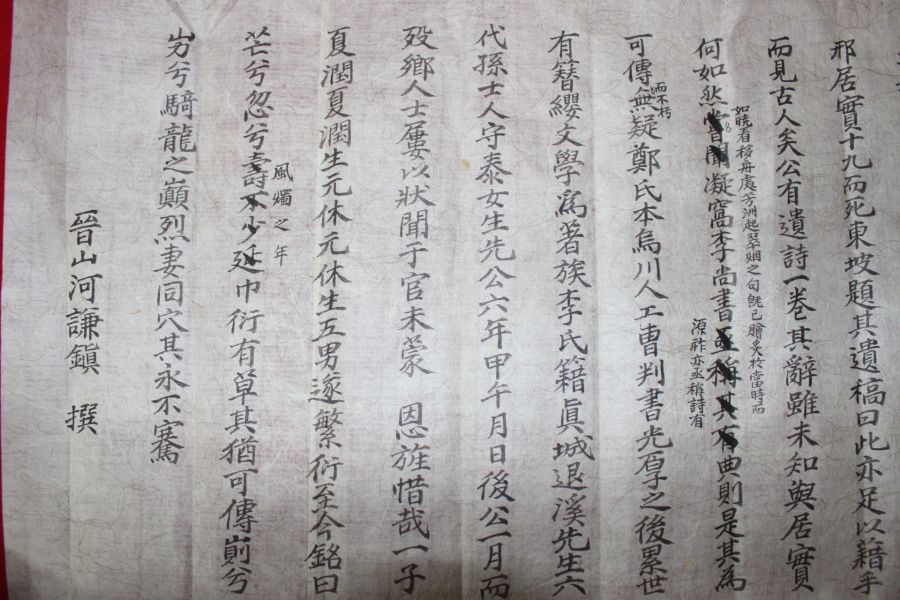 邢居實十九而死東坡題其遺稿曰此亦足以藉手
而見古人矣公有遺詩一卷其辭雖未知與居實
如曉看移舟處芳洲起翠烟之句旣已膾炙於當時而
何如然甞聞凝窩李尚書亟稱其有典則是其爲
源祚亦亟稱詩有
而不朽
可傳無疑鄭氏本烏川人工曹判書光厚之後累世
有簪纓文學爲著族李氏籍眞城退溪先生六
代孫士人守泰女生先公六年甲午月日後公一月而
歿鄉人士屢以狀聞于官未蒙 恩旌惜哉一子
夏潤夏潤生元休元休生五男遂繁衍至今銘曰
風燭之年
芒兮忽兮壽不少延巾衍有草其猶可傳崱兮
屶兮騎龍之巔烈妻同穴其永不騫
晉山河謙鎭 撰